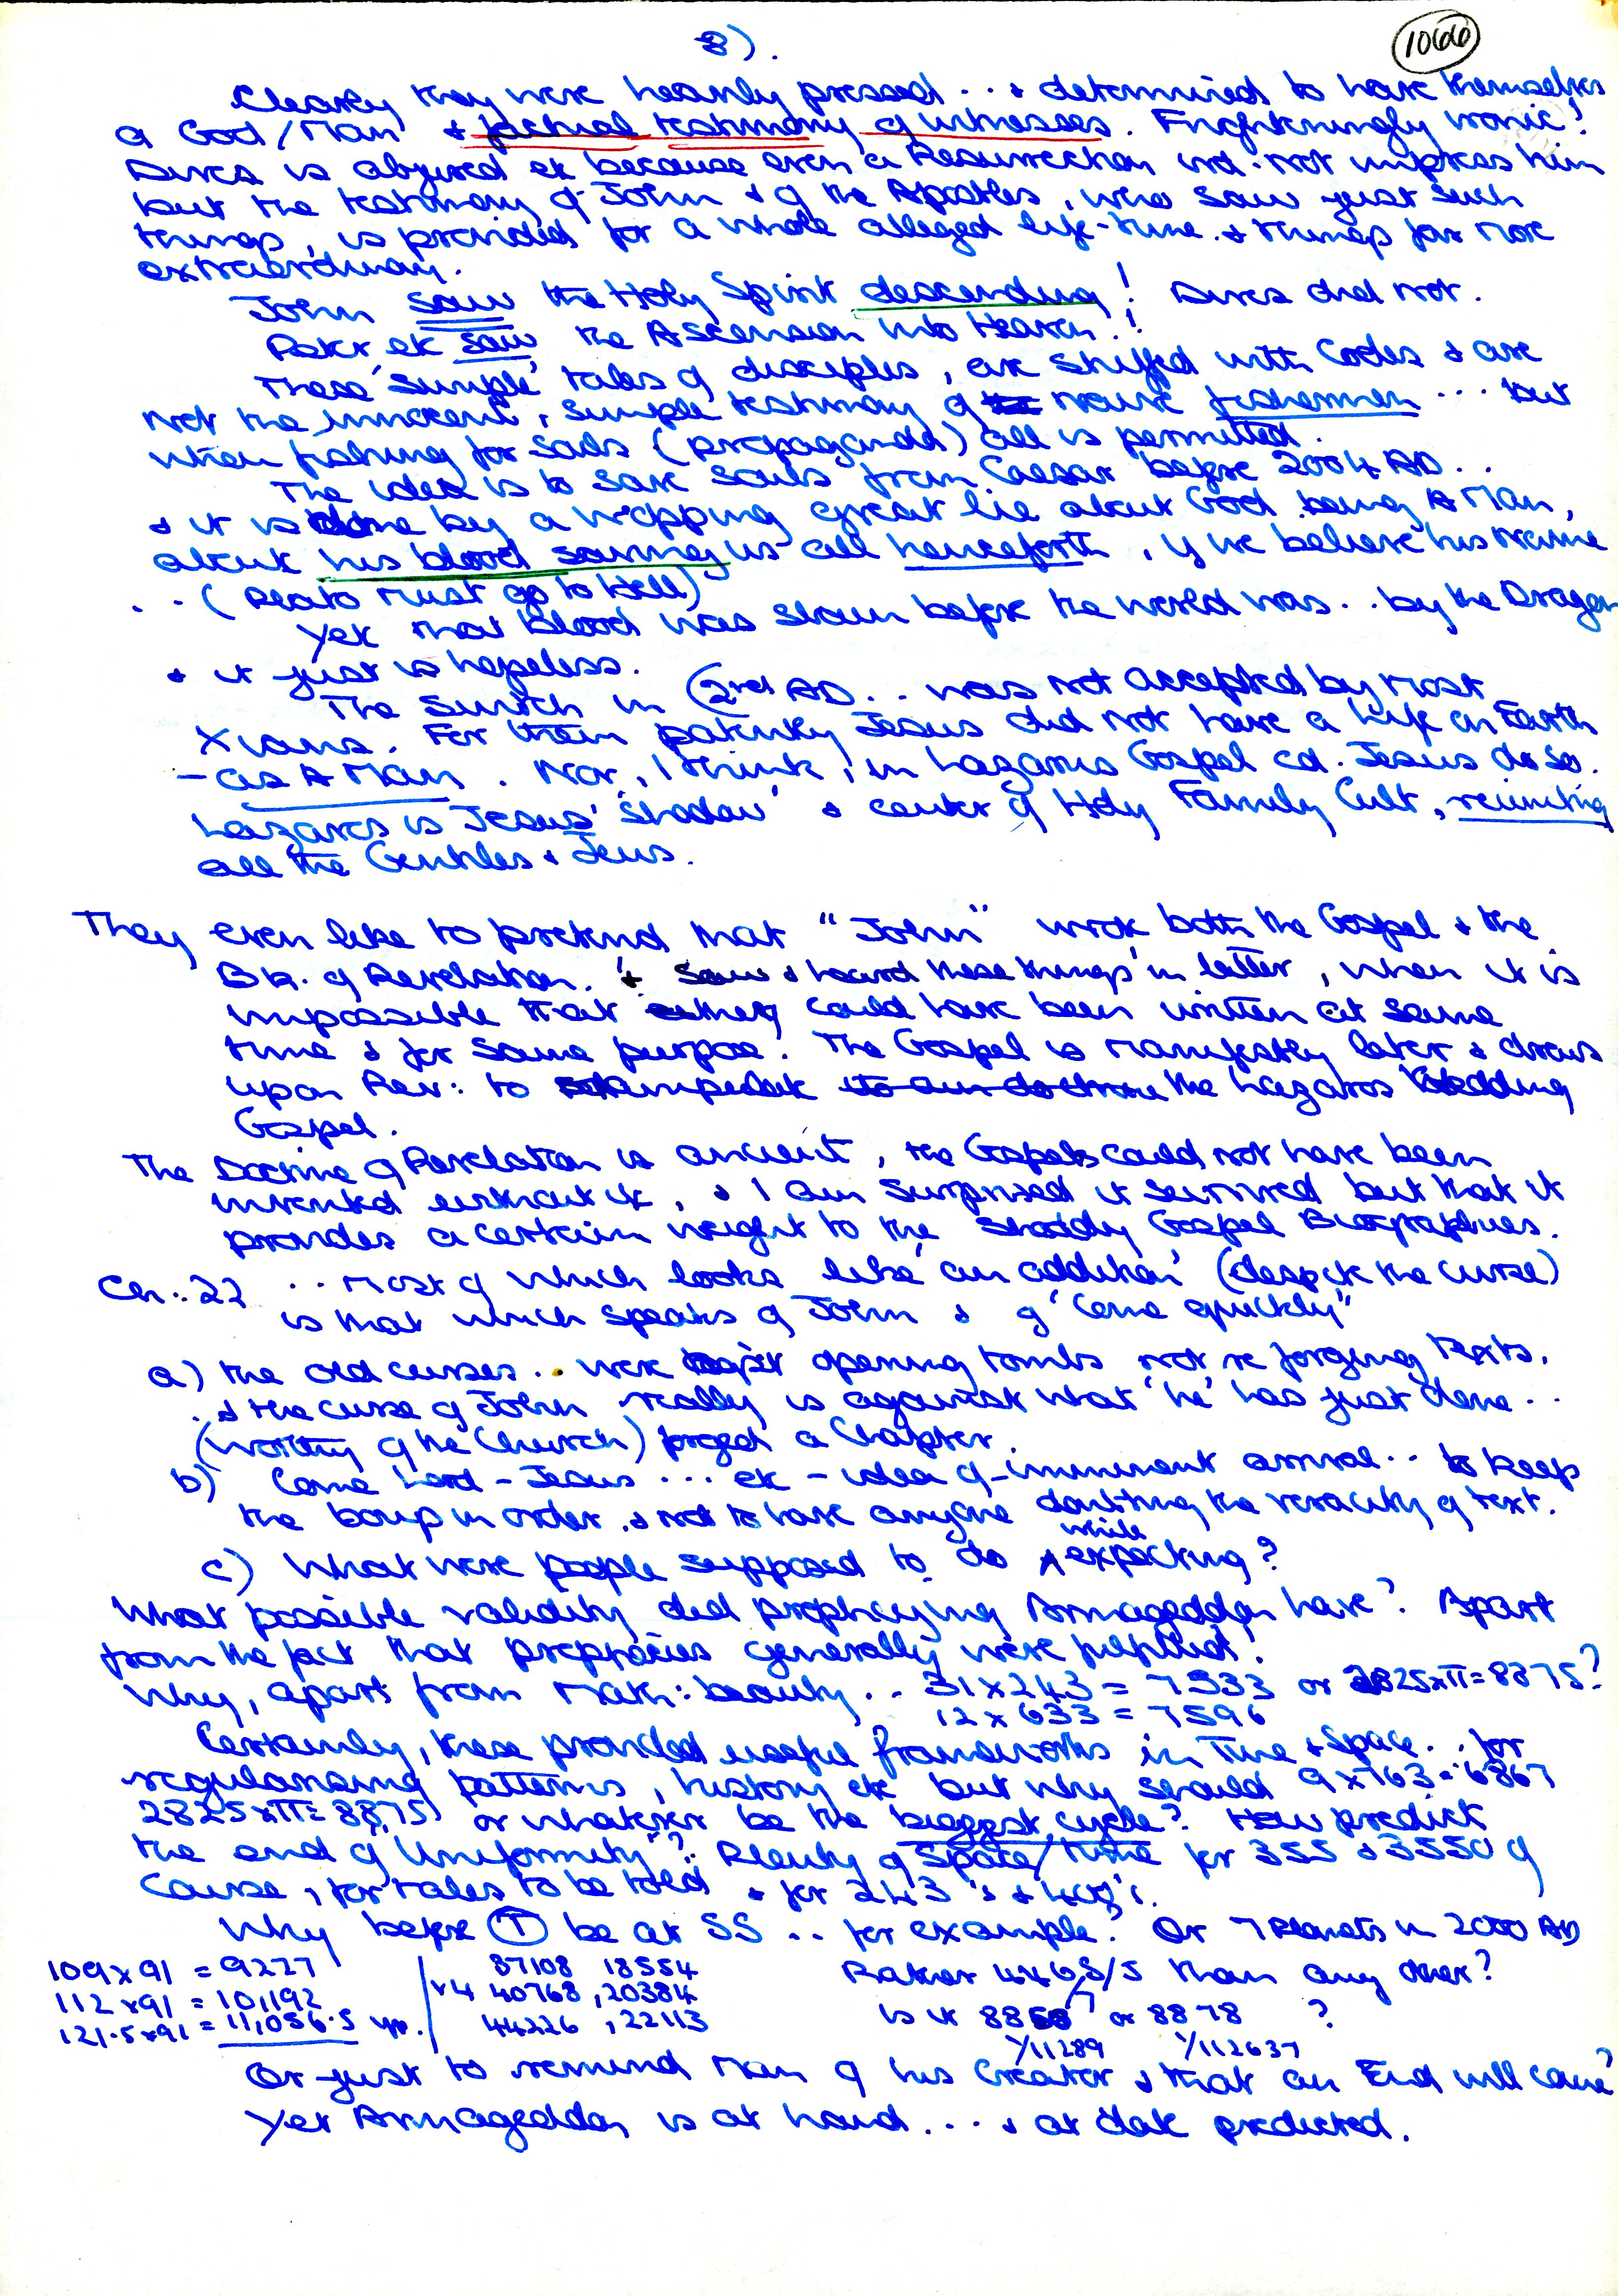 8).
1066
Clearly they were heavily pressed ... & determined to have themselves
a God/Man & factual testimony of witnesses. Frighteningly ironic!
Dives is abjured etc because even a Resurrection wd. not impress him
but the testimony of John & of the Apostles, who saw just such
things, is provided for a whole alleged life-time. & things far more
extraordinary.
John saw the Holy Spirit descending! Dives did not.
Peter etc saw the Ascension into Heaven!!
These 'simple' tales of disciples, are stuffed with Codes & are
not the innocent, simple testimony of naive fishermen ... but
when fishing for souls (propaganda) all is permitted.
The idea is to save souls from Caesar before 2004 AD..
& it is done by a whopping great lie about God being A Man,
about his blood saving us all henceforth, if we believe his name
.. (Plato must go to Hell)
Yet that Blood was slain before the world was.. by the Dragon
& it just is hopeless.
The switch in (2nd AD.. was not accepted by most
Xians. For them patently Jesus did not have a life on Earth
- as A Man. Nor, I think, in Lazarus Gospel cd. Jesus do so.
Lazarus is Jesus' 'shadow' & center of Holy Family Cult, reuniting
all the Gentiles & Jews.
They even like to pretend that "John" wrote both the Gospel & the
Bk. of Revelation. '& saw & heard these things' in latter, when it is
impossible that could have been written at same
time & for same purpose! The Gospel is manifestly later & draws
upon Rev: to the Lazarus Wedding
Gospel.
The Doctrine of Revelation is ancient, the Gospels could not have been
invented without it, & I am surprised it survived but that it
provides a certain weight to the shoddy Gospel Biographies.
Ch:.22 .. most of which looks like 'an addition' (despite the curse)
is that which speaks of John & of "Come quickly"
a) the old curses .. were opening tombs not re forging Texts.
.. & the curse of John really is against what 'he' has just done ..
(worthy of the Church) forged a Chapter.
b) Come Lord - Jesus ... etc - idea of imminent arrival .. to keep
the in order. & not to have anyone doubting the veracity of text.
c) What were people supposed to do while expecting?
What possible validity did prophecying Armageddon have? Apart
from the fact that prophecies generally were fulfilled!
Why, apart from Math: beauty .. 31x243 = 7533 or 2825xπ=8875?
12x633 = 7596
Certainly, these provided useful frameworks in Time & Space .. for
regularising patterns, history etc but why should 9x763=6867
2825xπ=8875 or whatever be the biggest cycle? How predict
the end of 'Uniformity'? Plenty of Space/Time for 355 & 3550 of
course, for tales to be told & for 243's &
Why before T be at SS .. for example? Or 7 Planets in 2000 AD
109x91 = 9227 87108 18554 Rather than any other?
112x91 = 10,192 x4 40768, 20384 is it or 8878 ?
121.5x91 = 11,056.5 44226, 22113 1/11289 1/112637
Or just to remind Man of his Creator & that an End will come?
Yet Armageddon is at hand ... & at date predicted.